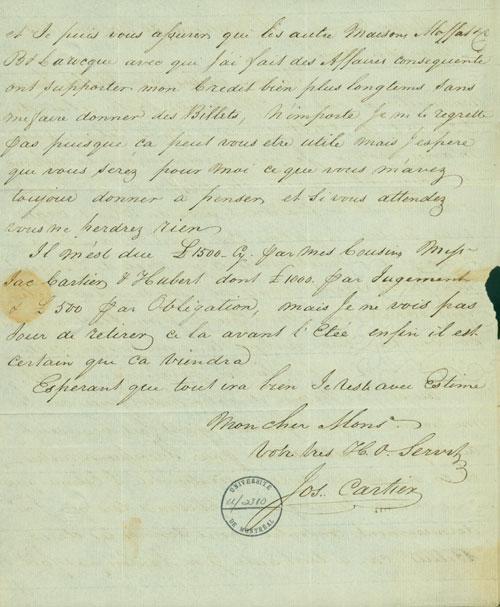 et Je puis vous assurer que les autre Maisons Moffat &c
Bt Larocque avec que j'ai fait des Affaires consequente
ont supporter mon Credit bien plus longtems sans
me faire donner des Billets, N'importe Je ne le regrette
pas puisque ça peut vous etre utile mais J'espere
que vous serez pour moi ce que vous m'avez
toujour donner a penser et Si vous attendez
vous ne perdrez rien
Il m'est due £1500 Cy. par Mes Cousins Mess
Jac Cartier & Hubert dont £1000. par Jugement
£500 par Obligation, mais Je ne vois pas
Jour de retirer ce la avant l'Eteé enfin il est
certain que ca viendra
Esperant que tout ira bien Je reste avec Estime
Mon cher Monsr.
Votr tres H. O. Servt
Jos. Cartier
UNIVERSITÉ
U/2310
DE MONTRÉAL